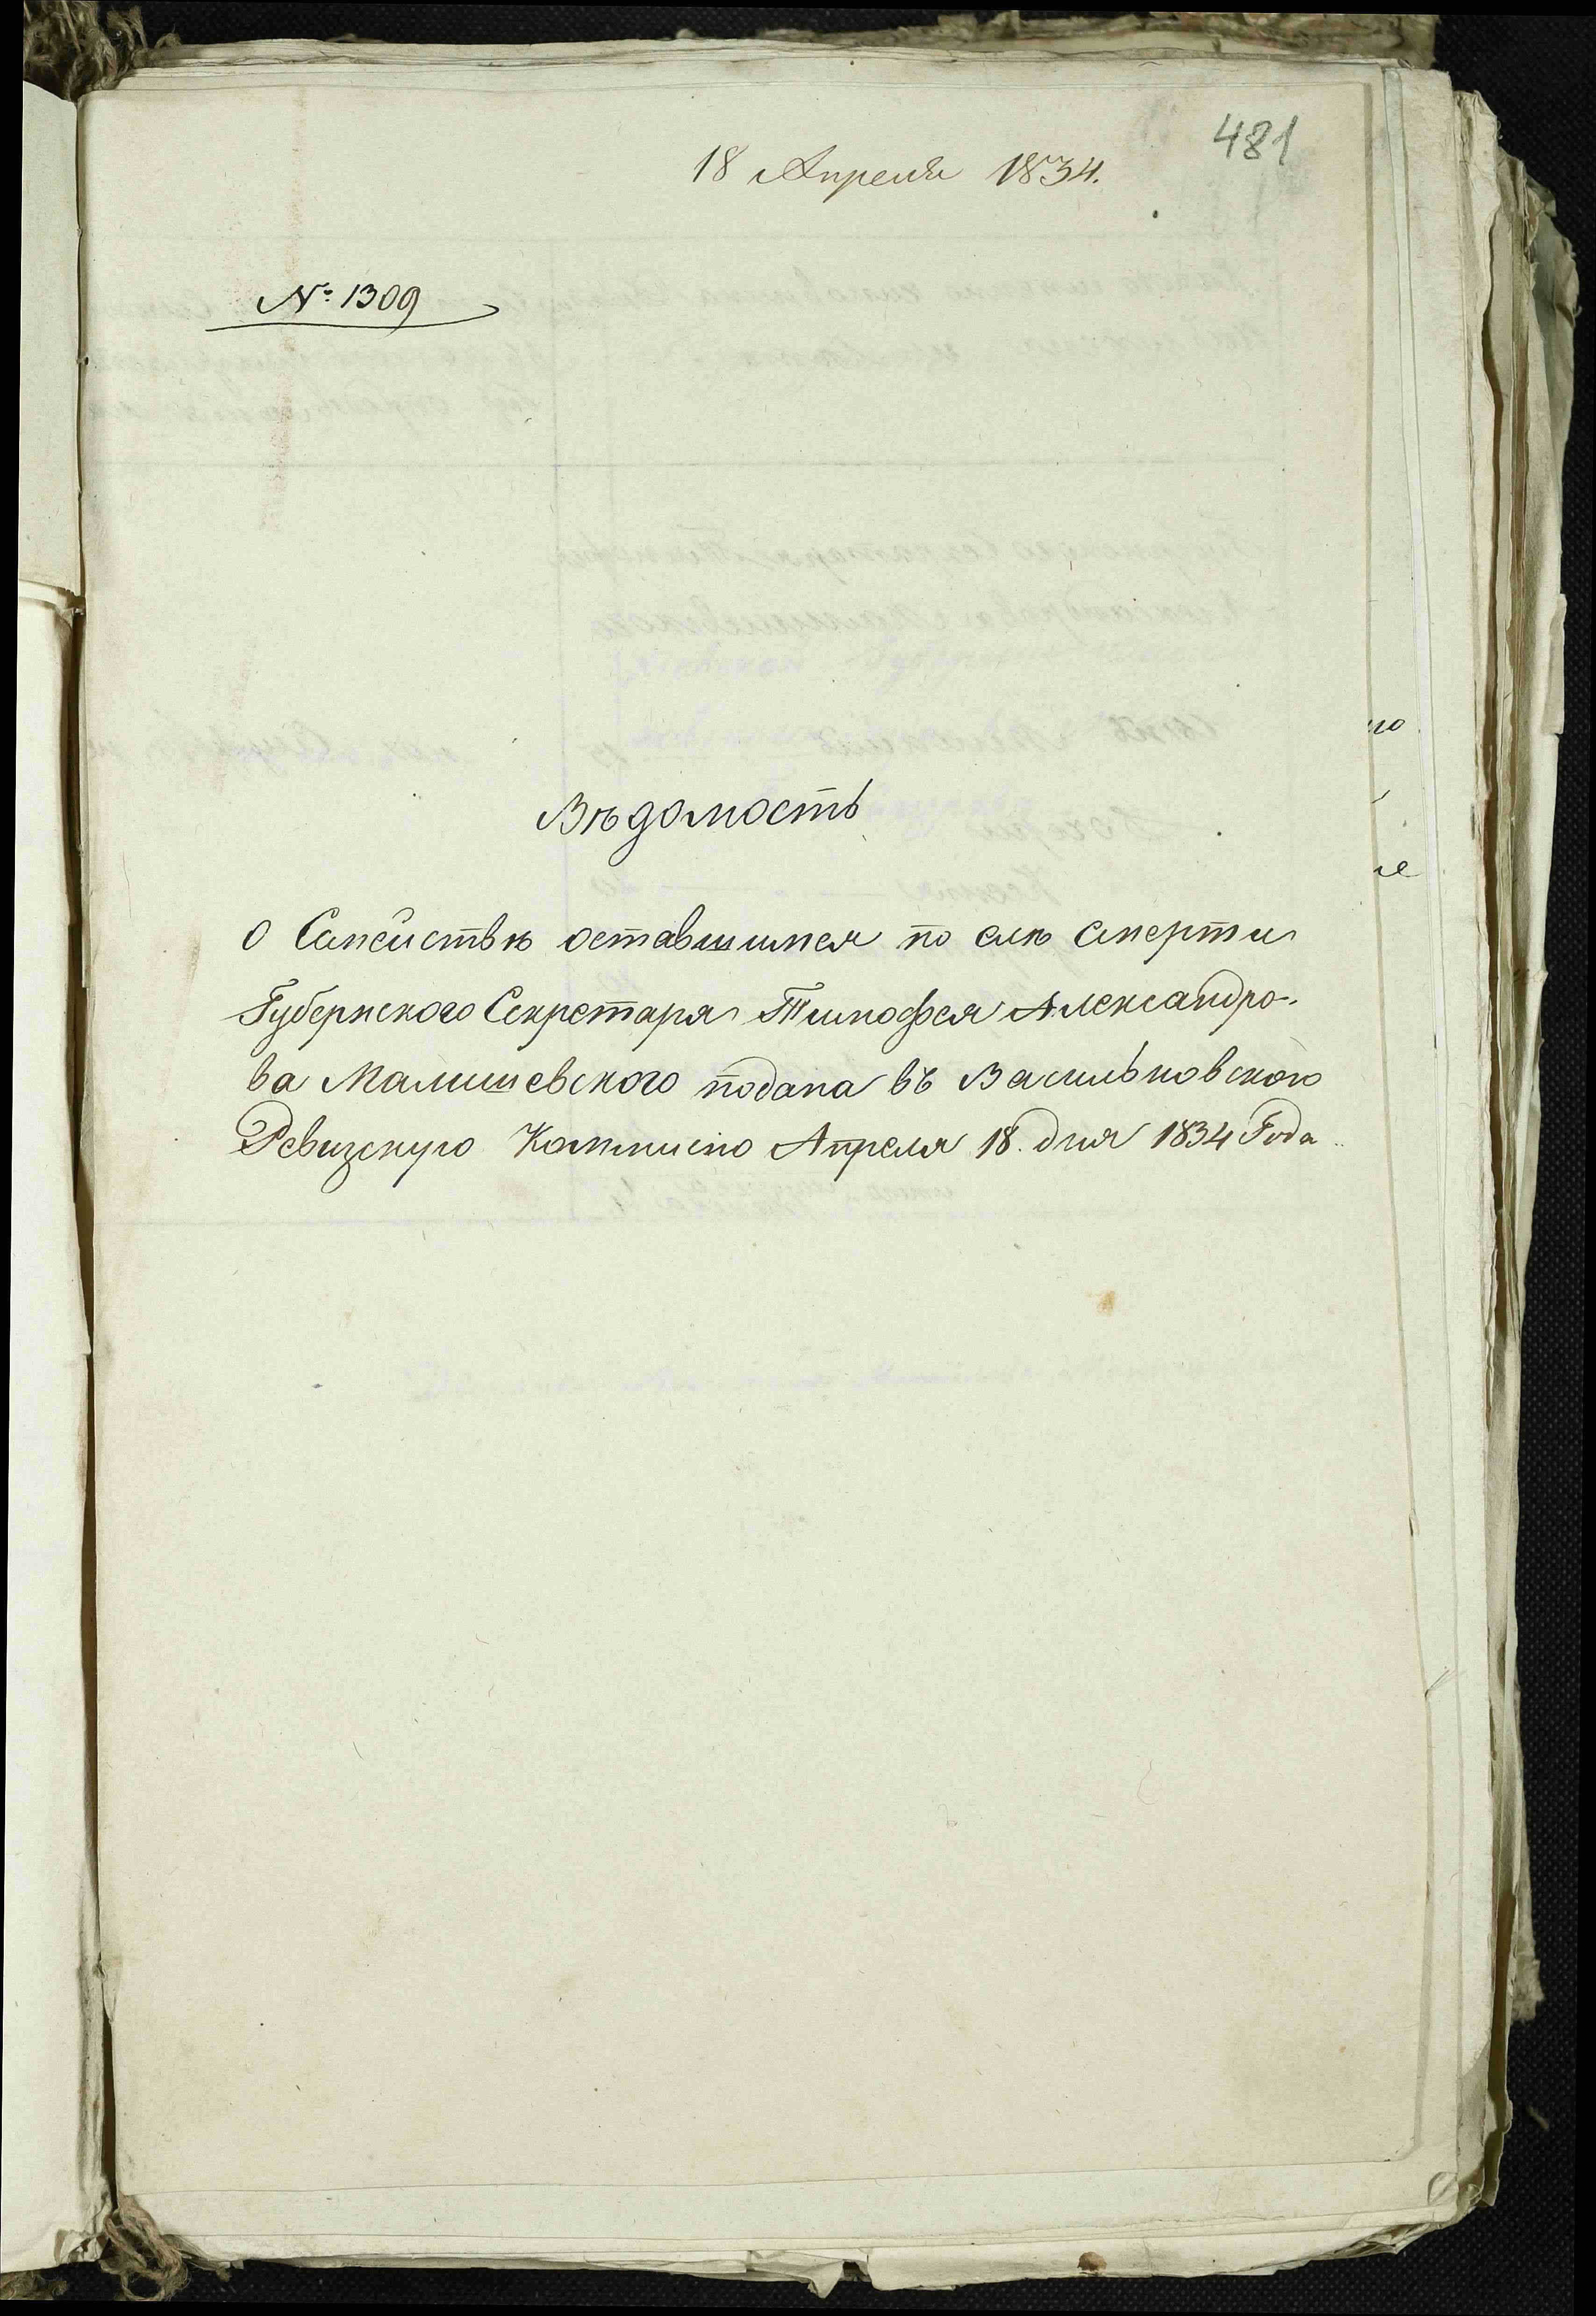 481
18 Апреля 1834.
№ 1309
Вѣдомость
о Семействѣ оставшимся по слѣ смерти
Губернского Секретаря Тимофея Александро-
ва Малишевского подана въ Васильковскою
Ревизскую Коммисию Апреля 18. дня 1834 Года